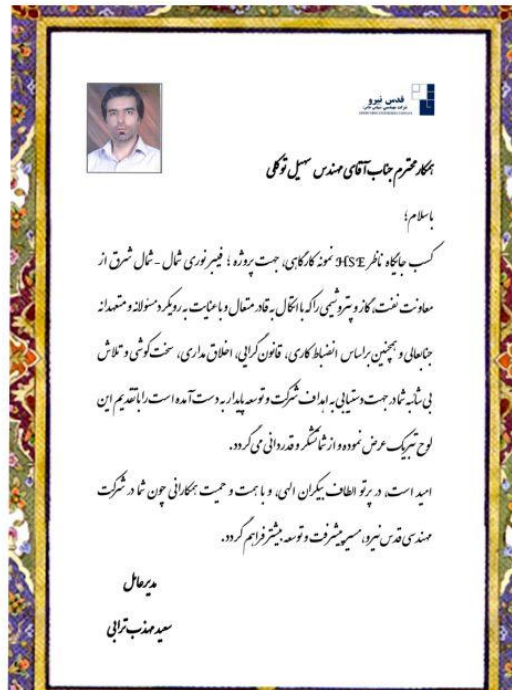 قدس نیرو
همکار محترم جناب آقای مهندس سهیل توکلی
باسلام؛
کسب جایگاه ناظر HSE نمونه کارگاهی، جهت پروژه ؛ فیبر نوری شمال - شمال شرق از
معاونت نفت، گاز و پتروشیمی را که با اتکال به قادر متعال و با عنایت به رویکرد مسئولانه و متعهدانه
جنابعالی و همچنین براساس انضباط کاری، قانون گرایی، اخلاق مداری، سخت کوشی و تلاش
بی شائبه شما در جهت دستیابی به اهداف شرکت و توسعه پایدار به دست آمده است را با تقدیم این
لوح تبریک عرض نموده و از شما تشکر و قدردانی می گردد.
امید است، در پرتو الطاف بیکران الهی، و با همت و حمیت همکارانی چون شما در شرکت
مهندسی قدس نیرو، مسیر پیشرفت و توسعه بیشتر فراهم گردد.
مدیرعامل
سعید مهذب ترابی